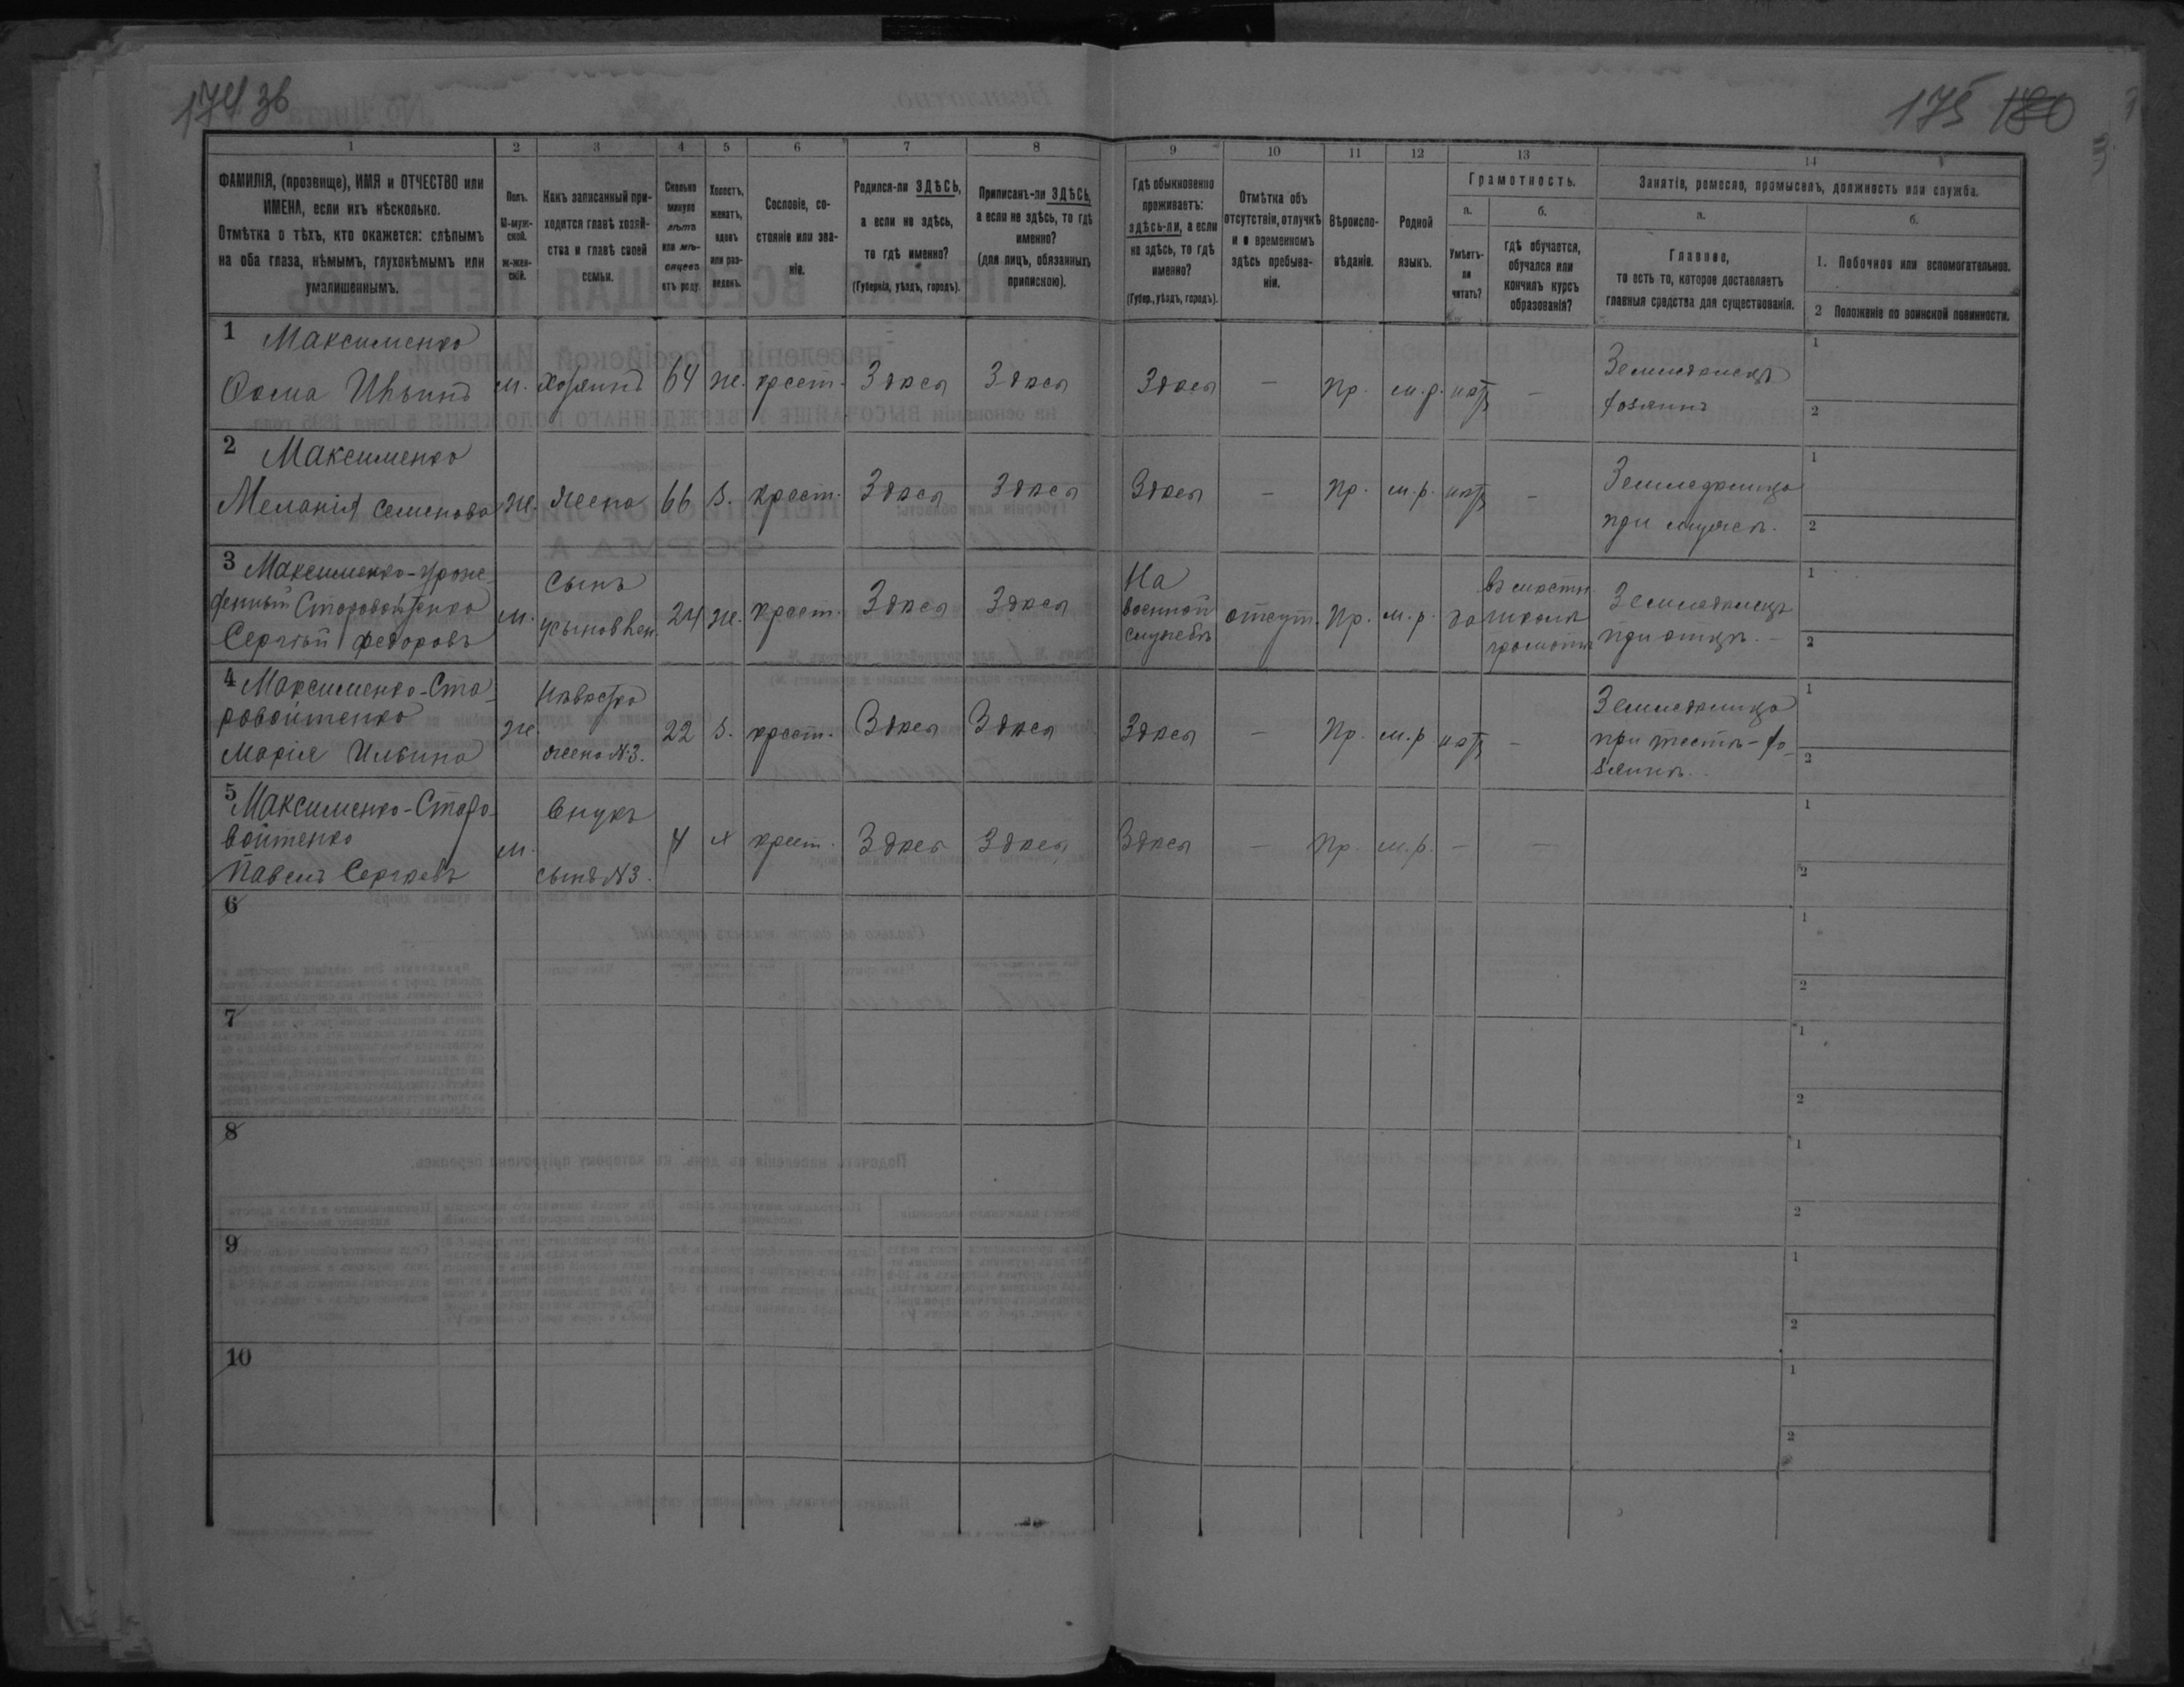 174 зв
175 180
1 2 3 4 5 6 7 8 9 10 11 12 13 14
ФАМИЛІЯ, (прозвище), ИМЯ и ОТЧЕСТВО или
ИМЕНА, если ихъ нѣсколько.
Отмѣтка о тѣхъ, кто окажется: слѣпымъ
на оба глаза, нѣмымъ, глухонѣмымъ или
умалишеннымъ.
Полъ.
М-муж-
ской.
ж-жен-
скій.
Какъ записанный при-
ходится главѣ хозяй-
ства и главѣ своей
семьи.
Сколько
минуло
лѣтъ
или мѣ-
сяцевъ
отъ роду.
Холостъ,
женатъ,
вдовъ
или раз-
веденъ.
Сословіе, со-
стояніе или зва-
ніе.
Родился-ли ЗДѢСЬ,
а если не здѣсь,
то гдѣ именно?
(Губернія, уѣздъ, городъ).
Приписанъ-ли ЗДѢСЬ,
а если не здѣсь, то гдѣ
именно?
(для лицъ, обязанныхъ
припискою).
Гдѣ обыкновенно
проживаетъ:
здѣсь-ли, а если
не здѣсь, то гдѣ
именно?
(Губер., уѣздъ, городъ).
Отмѣтка объ
отсутствіи, отлучкѣ
и о временномъ
здѣсь пребыва-
ніи.
Вѣроиспо-
вѣданіе.
Родной
языкъ.
Грамотность.
а.
Умѣетъ-
ли
читать?
б.
гдѣ обучается,
обучался или
кончилъ курсъ
образованія?
Занятіе, ремесло, промыселъ, должность или служба.
а.
Главное,
то есть то, которое доставляетъ
главныя средства для существованія.
б.
1. Побочное или вспомогательное.
2 Положеніе по воинской повинности.
1 Максименко
Фома Ивынъ м. хозяинъ 64 же. крест. Здѣсь Здѣсь Здѣсь - пр. м.р. нѣтъ -
Земледѣлецъ
хозяинъ
1
2
2 Максименко
Меланія Семенова же. жена 66 з. крест. Здѣсь Здѣсь Здѣсь - пр. м.р. нѣтъ -
Земледѣлица
при мужѣ.
1
2
3 Максименко-урож-
денный Старовойтенко
Сергѣй Федоровъ м.
сынъ
усыновлен. 24 же. крест. Здѣсь Здѣсь
На
военной
службѣ отсут. пр. м.р. да
школѣ
грамоты
Земледѣлецъ
при отцѣ. -
1
2
4 Максименко-Ста-
ровойтенко
Марія Ильина же.
Невѣстка
жена №3. 22 з. крест. Здѣсь Здѣсь Здѣсь - пр. м.р нѣтъ -
Земледѣлица
при тестѣ-хо-
зяинѣ.
1
2
5 Максименко-Старо-
войтенко
Павелъ Сергѣевъ м.
внукъ
сынъ №3. 4 х крест. Здѣсь Здѣсь Здѣсь - пр. м.р. - -
1
2
6
1
2
7
1
2
8
1
2
9
1
2
10
1
2